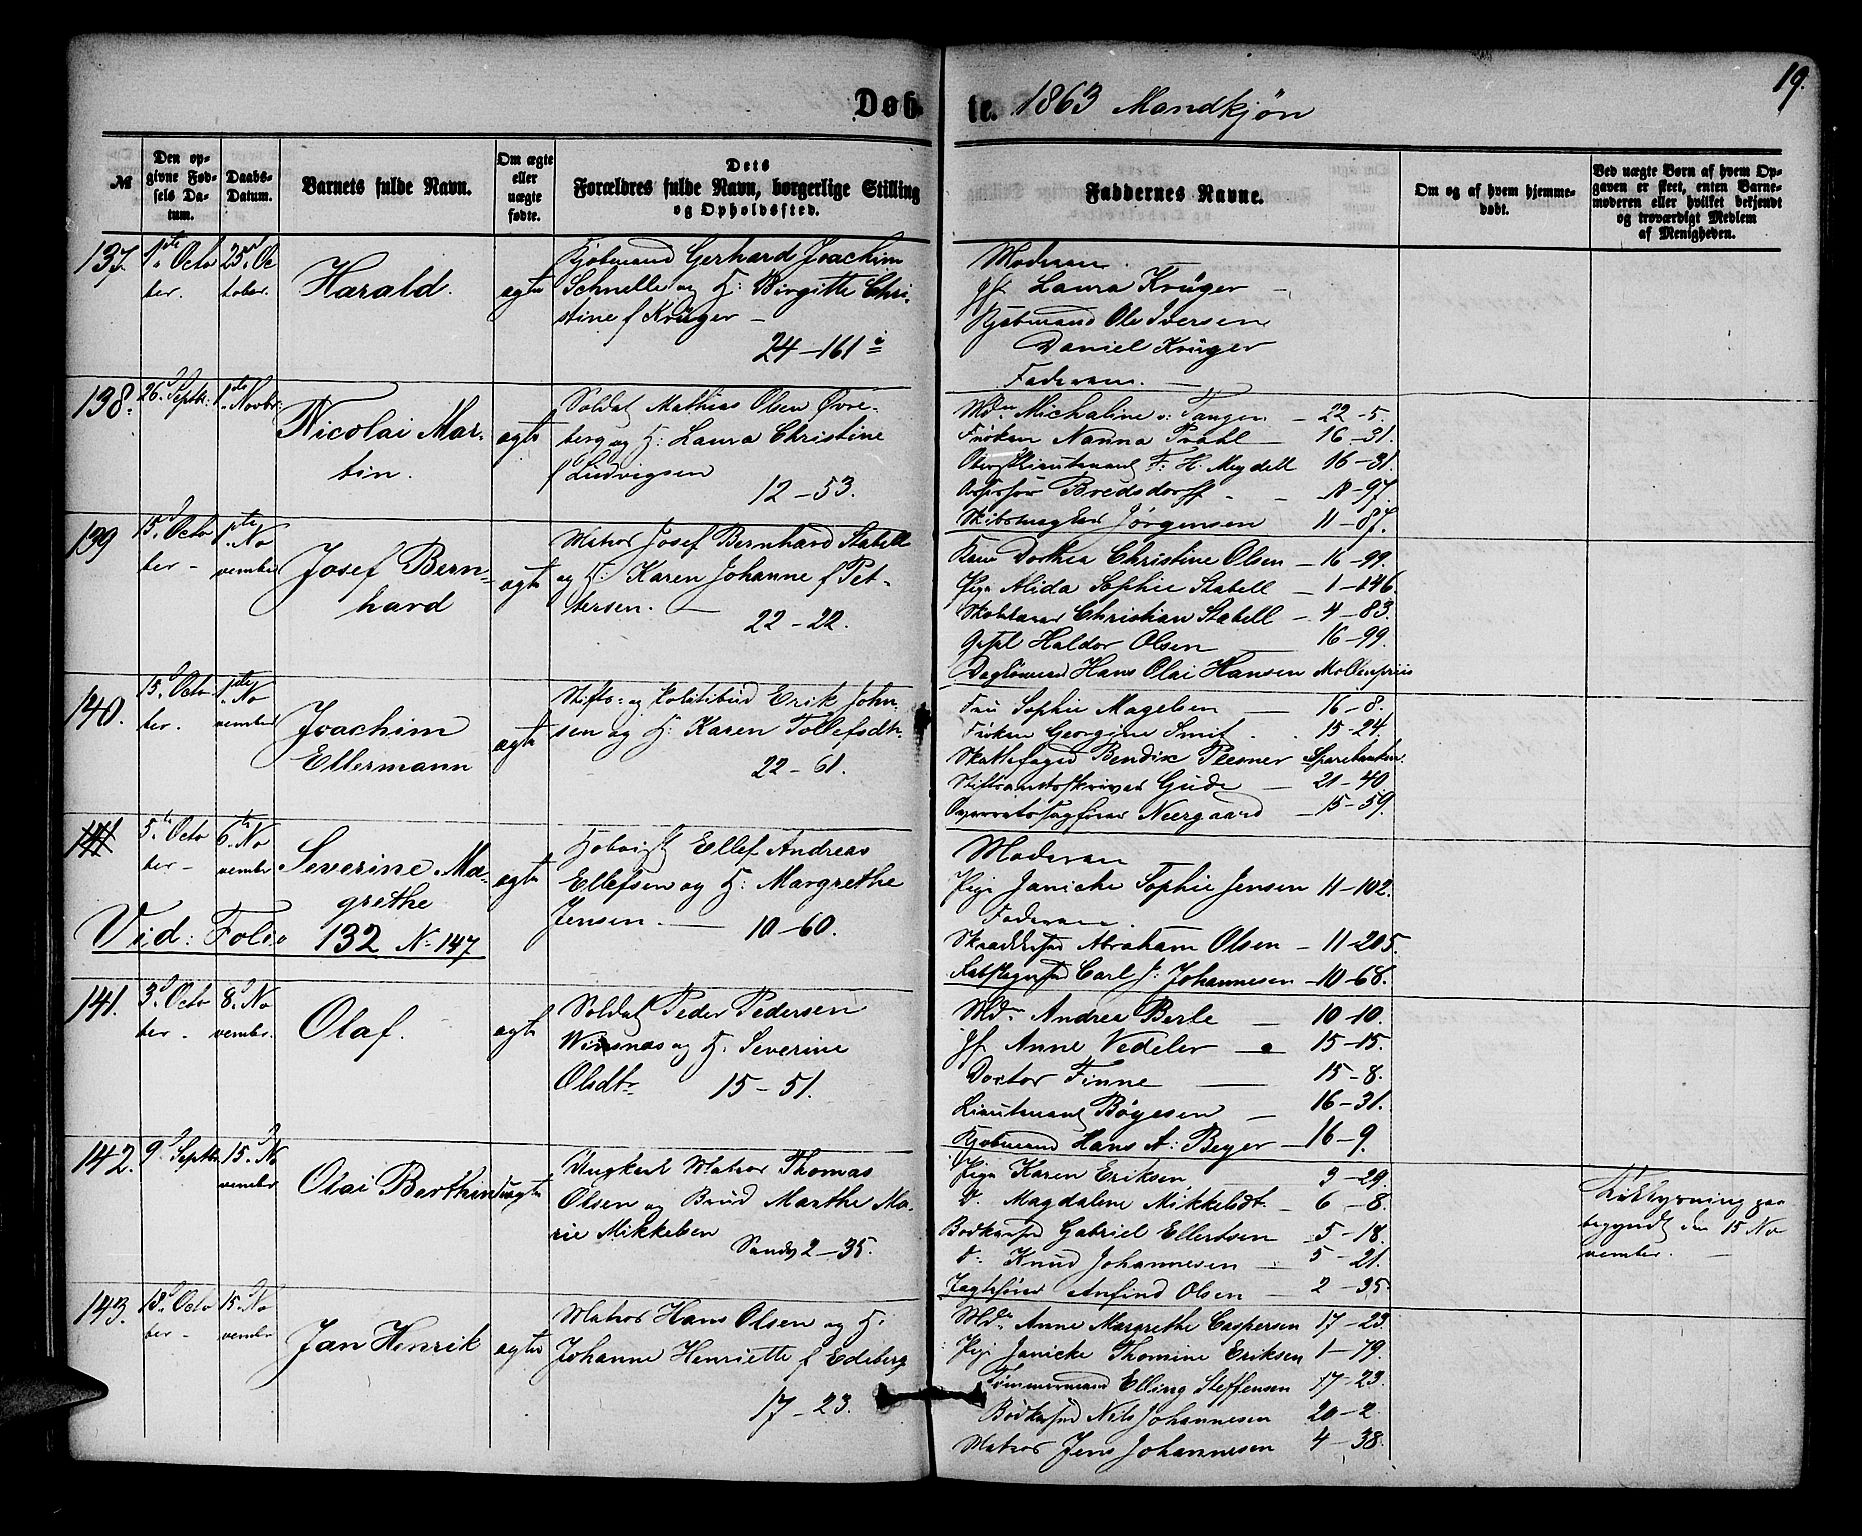 19.
Døb-te. 1863 Mandkjøn
№
Den op-
givne Fød-
sels Da-
tum.
Daabs-
Datum.
Barnets fulde Navn.
Om ægte
eller
uægte
fødte.
Dets
Forældres fulde Navn, borgerlige Stilling
og Opholdssted.
Faddernes Navne.
Om og af hvem hjemme-
døbt.
Ved uægte Børn af hvem Op-
gaven er skeet, enten Barne-
moderen eller hvilket bekjendt
og troværdigt Medlem
af Menigheden.
137.
1ste Octo
ber.
25. Oc
tober.
Harald.
ægte
Kjøbmand Gerhard Joachim
Schnelle og H: Birgitte Chri-
stine f Krüger –
24–161
Moderen
Jf. Laura Krüger –
Kjøbmand Ole Iversen
Daniel Krüger
Faderen. –
138.
26 Septbr:
1ste Novbr:
Nicolai Mar-
tin.
ægte
Soldat Mathias Olsen Øvre-
berg og H: Laura Christine
f Ludvigsen
12–53.
Md. Michaline v: Tangen – 22–5.
Frøken Nanna Prahl – 16–31.
Oberstlieutenant F: H. Meydell 16–31
Assessor Bredsdorff – 18–97.
Skibsmægler Jørgensen 11–87.
139
15. Octo
ber –
1ste No
vember
Josef Bern-
hard
ægte
Matros Josef Bernhard Stabell
og H: Karen Johanne f Pet-
tersen. –
22–22.
Kone Dorthea Christine Olsen –16–99.
Pige Alida Sophie Stabell – 1–146.
Christian Stabell – 4–83.
Haldor Olsen 16–99.
Dagløner Hans Olai Hansen Møllenpriis
140.
15. Octo
ber.
1ste No
vember
Joachim
Ellermann
ægte
Stifts- og Politibud Erik John-
sen og H: Karen Tollefsdtr.
22–61.
Fru Sophie Magelsen – 16–8.
Frøken Georgine Smit. . 15–24.
Skattefoged Bendix Plesner Sparebanken.
Stiftsamtsskriver Gude – 21–40
Overretssagfører Neergaard – 15–59.
141
5. Octo
ber –
6. No
vember
Severine Ma-
grethe
ægte
Ellef Andreas
Ellefsen og H: Margrethe
Jensen. – 10–60.
Moderen
Pige Janiche Sophie Jensen 11–102.
Faderen.
Abraham Olsen – 11–205.
Carl J: Johannesen –10–68.
Vid: Folio 132 N. 147
141.
3. Octo
ber –
8. No
vember.
Olaf.
ægte
Soldat Peder Pedersen
Winsnæs og H: Severine
Olsdtr. 15–51.
Md. Andrea Berle – 10–10.
Jf. Anne Vedeler – 15–15.
Doctor Finne – 15–8.
Lieutenant Bøgesen – 16–31.
Kjøbmand Hans A: Beyer –16–9.
142.
9. Septbr.
15. No
vember
Olai Berthin
uægte
Ungkarl Matros Thomas
Olsen og Brud Marthe Ma-
rie Mikkelsen
Sandv 2–35.
Pige Karen Eriksen 3–29.
D. Magdalene Mikkelsdt. – 6–8.
Gabriel Ellertsen – 5–18.
D. Knud Johannesen – 5–21.
Anfind Olsen – 2–35.
begyndt den 15 No
vember.
143.
18. Octo
ber –
15. No
vember
Jan Henrik
ægte
Matros Hans Olsen og H:
Johanne Henriette f Edeberg
17–23.
Md. Anne Margrethe Caspersen 17–23.
Pige Janicke Thomine Eriksen 1–79.
Tømmermand Elling Steffensen 17–23.
Nils Johannesen 20–2.
Matros Jens Johannesen 4–38.